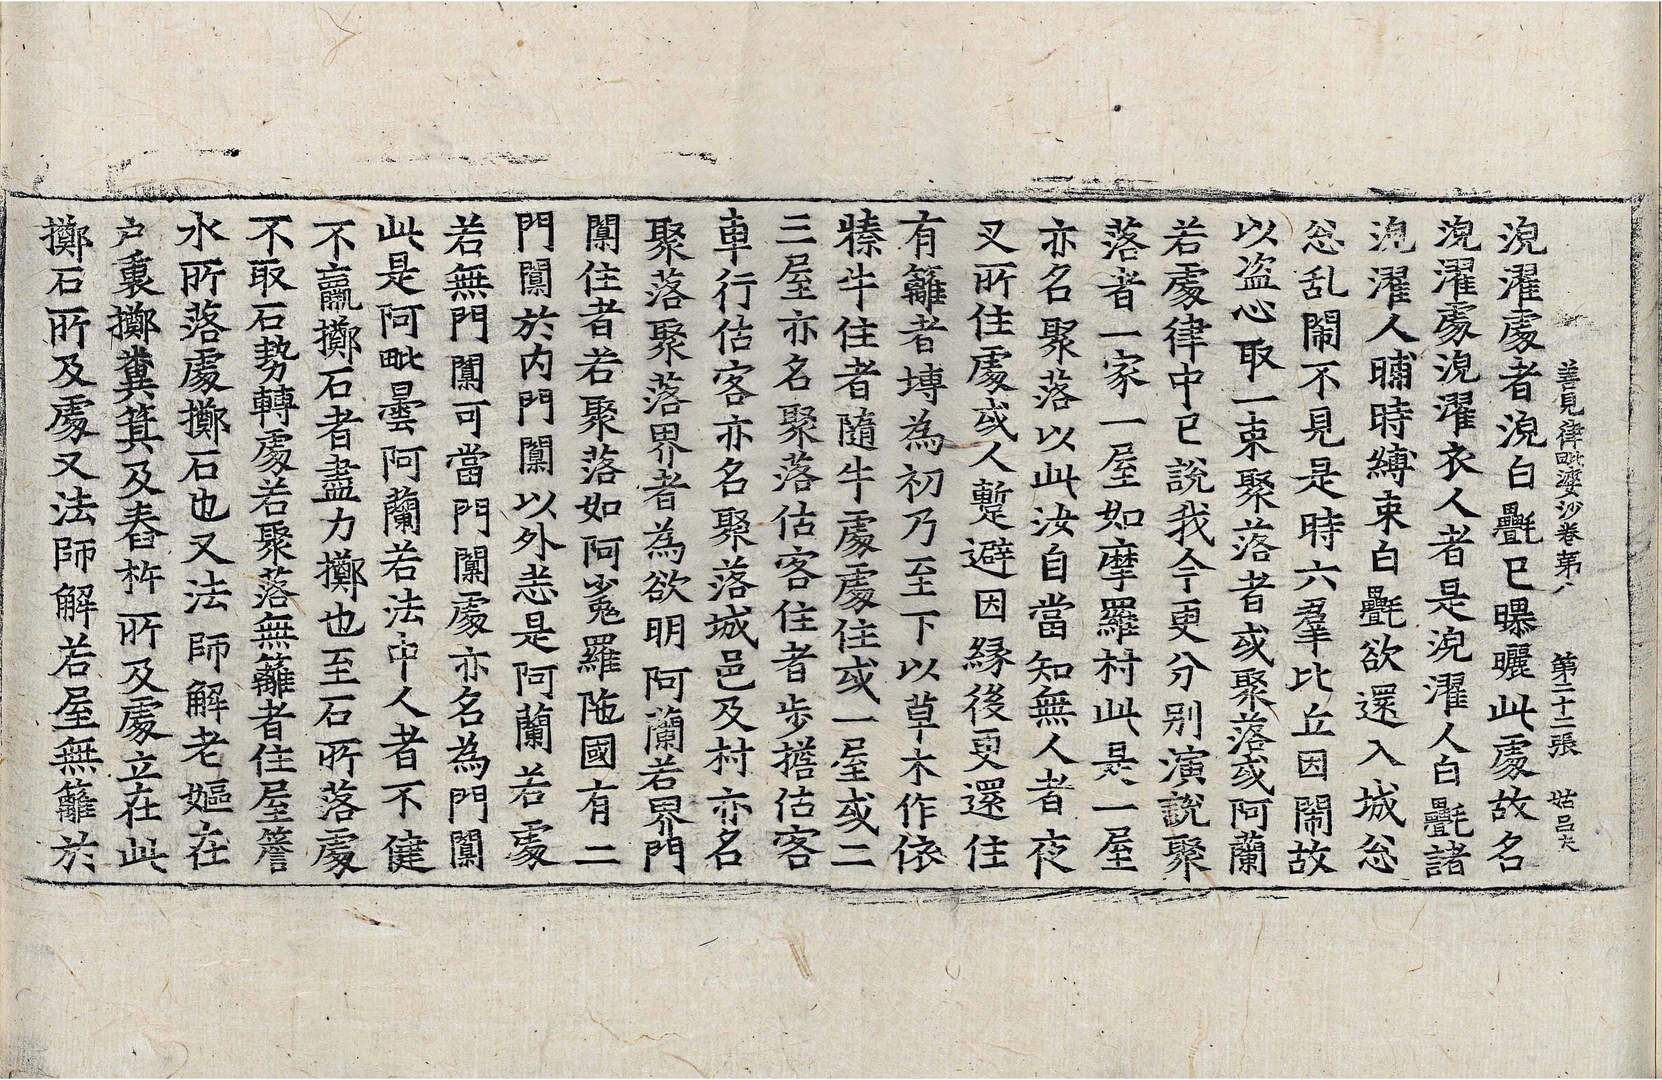 善見律毗婆沙卷第八 第二十二張 姑呂夫
浣濯處者浣白㲲已曝曬此處故名
浣濯處浣濯衣人者是浣濯人白㲲諸
浣濯人晡時縛束白㲲欲還入城忩
忩乱鬧不見是時六羣比丘因鬧故
以盗心取一束聚落者或聚落或阿蘭
若處律中已說我今更分別演說聚
落者一家一屋如摩羅村此是一屋
亦名聚落以此汝自當知無人者夜
叉所住處或人蹔避因緣後更還住
有籬者塼為初乃至下以草木作依
㹌牛住者隨牛牛處處住或一屋或二
三屋亦名聚落估客住者步擔估客
車行估客亦名聚落城邑及村亦名
聚落聚落界者為欲明阿蘭若界門
闑住者若聚落如阿㝹羅陁國有二
門闑於内門闑以外悉是阿蘭若處
若無門闑可當門闑處亦名為門闑
此是阿毗曇阿蘭若法中人者不健
不羸擲石者盡力擲也至石所落處
不取石勢轉處若聚落無籬者住屋簷
水所落處擲石也又法師解老嫗在
户裏擲糞箕及舂杵所及處立在此
擲石所及處又法師解若屋無籬於